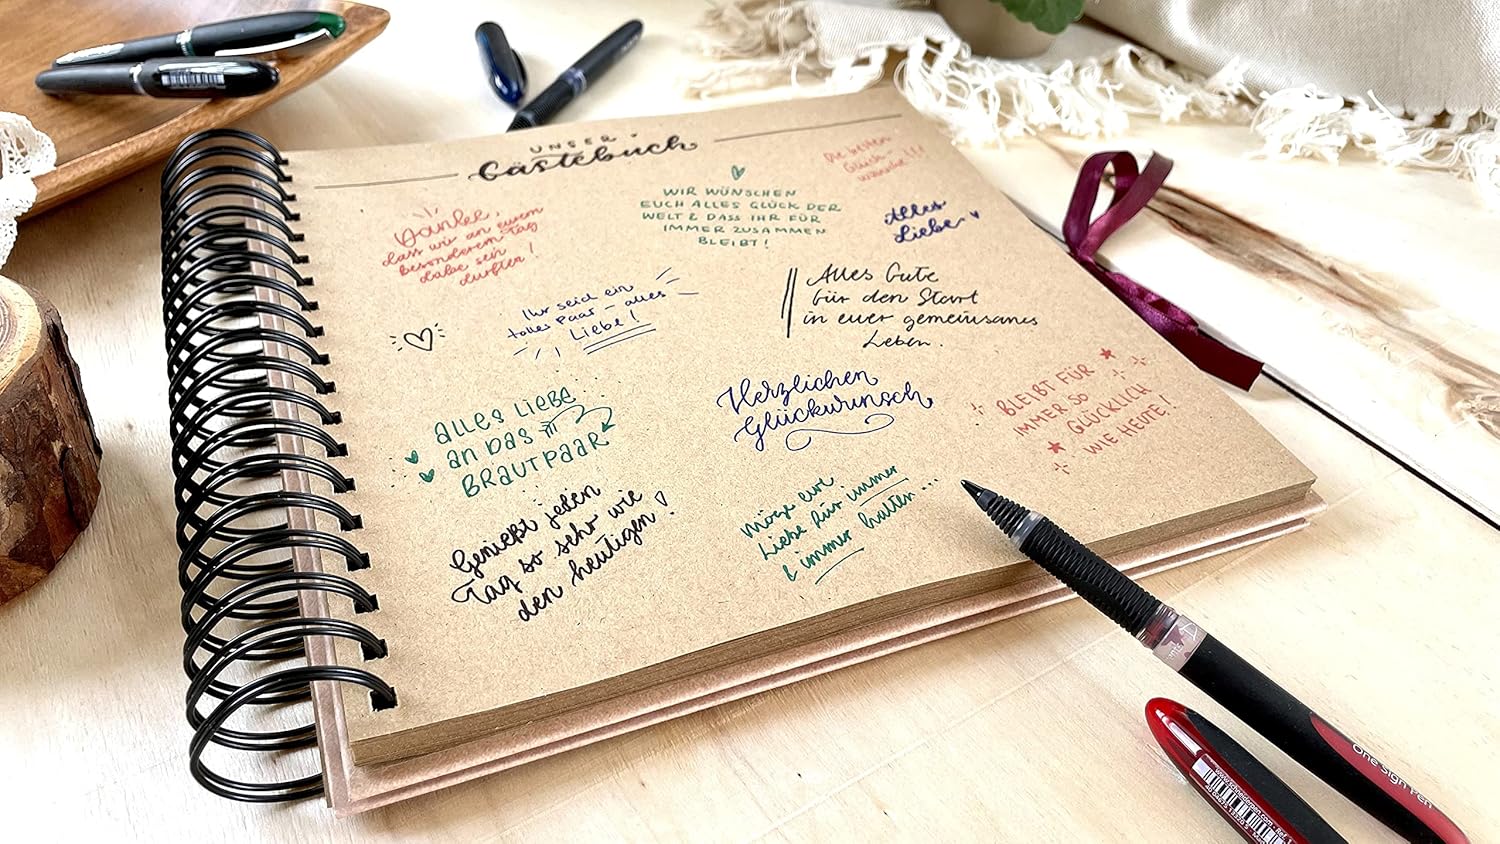 UNSER
Gästebuch
Danke,
dass wir an eurem
besonderem Tag
dabei sein
durften!
WIR WÜNSCHEN
EUCH ALLES GLÜCK DER
WELT & DASS IHR FÜR
IMMER ZUSAMMEN
BLEIBT!
Die besten
Glück-
wünsche!!!
Alles
Liebe
Ihr seid ein
tolles Paar - alles
Liebe!
Alles Gute
für den Start
in euer gemeinsames
Leben.
ALLES LIEBE
an DAS
BRAUTPAAR
Herzlichen
Glückwunsch
BLEIBT FÜR
IMMER SO
GLÜCKLICH
WIE HEUTE!
Genießt jeden
Tag so sehr wie
den heutigen!
Möge eure
Liebe für immer
& immer halten...
One Sign Pen